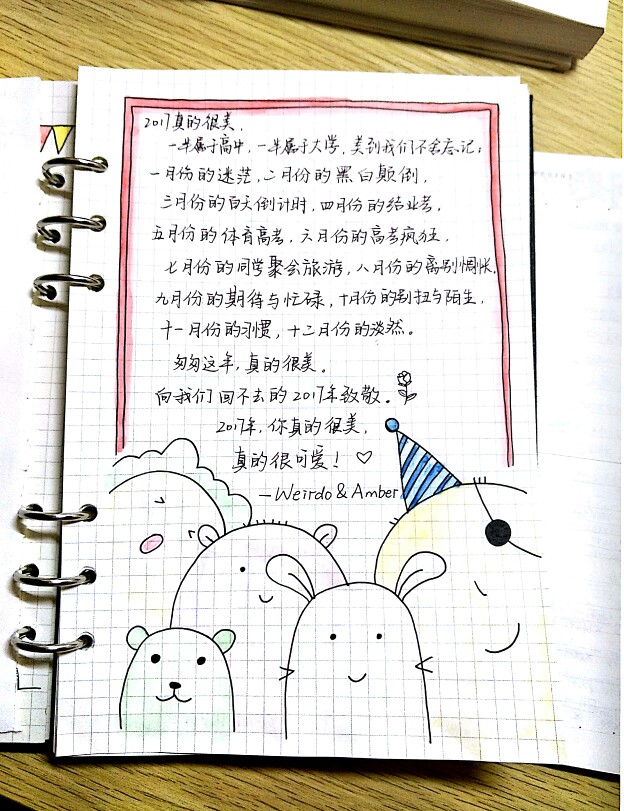 2017真的很美,
一半属于高中,一半属于大学,美到我们不舍忘记;
一月份的迷茫,二月份的黑白颠倒,
三月份的百天倒计时,四月份的结业考,
五月份的体育高考,六月份的高考疯狂,
七月份的同学聚会旅游,八月份的离别惆怅,
九月份的期待与忙碌,十月份的别扭与陌生,
十一月份的习惯,十二月份的淡然。
匆匆这年,真的很美。
向我们回不去的2017年致敬。
2017年,你真的很美,
真的很可爱!♡
—Weirdo & Amber